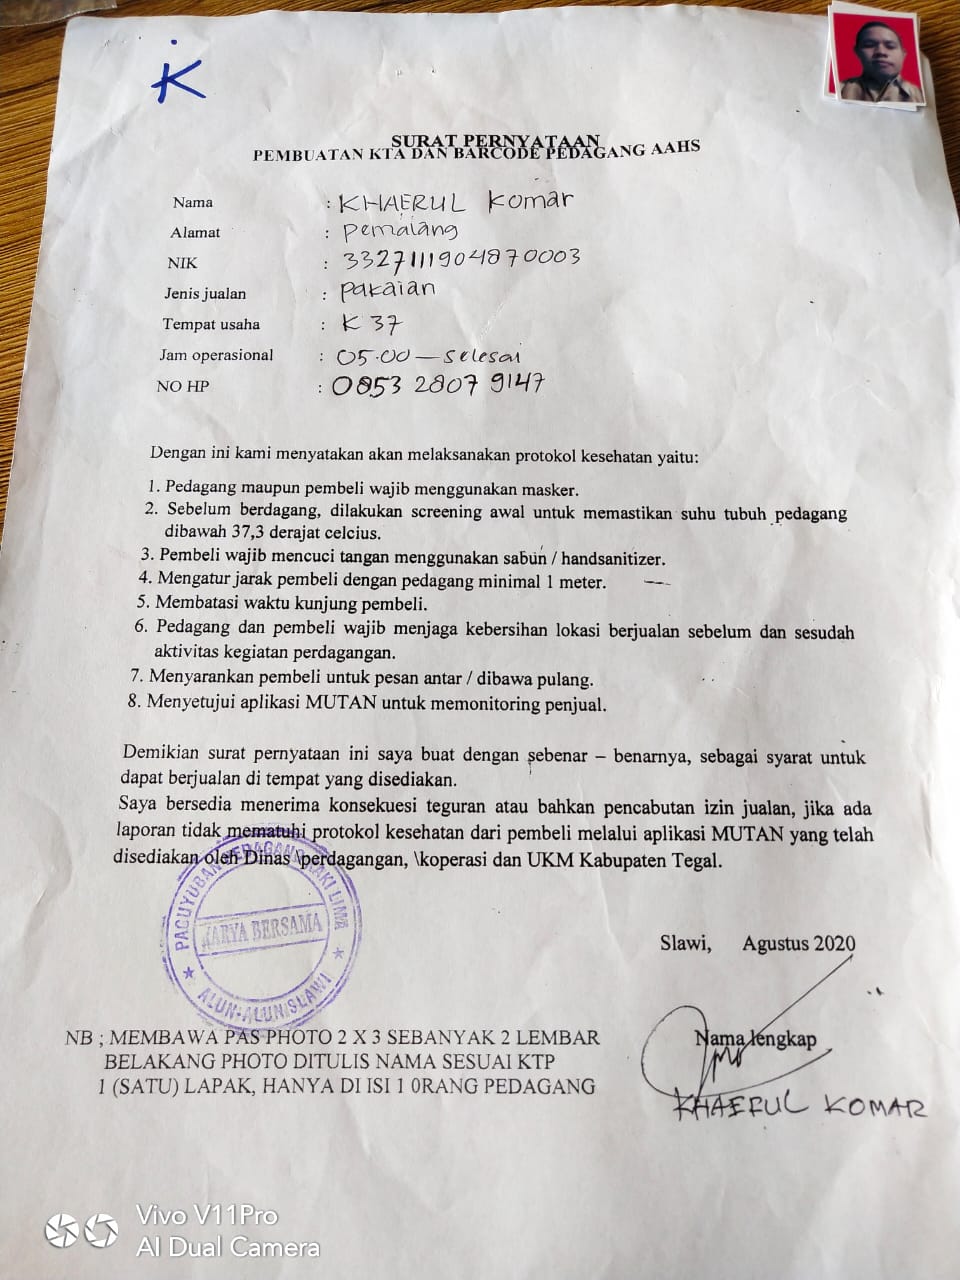 K
SURAT PERNYATAAN
PEMBUATAN KTA DAN BARCODE PEDAGANG AAHS
Nama : KHAERUL Komar
Alamat : Pemalang
NIK : 3327111904870003
Jenis jualan : pakaian
Tempat usaha : K 37
Jam operasional : 05.00 — selesai
NO HP : 0853 2807 9147
Dengan ini kami menyatakan akan melaksanakan protokol kesehatan yaitu:
1. Pedagang maupun pembeli wajib menggunakan masker.
2. Sebelum berdagang, dilakukan screening awal untuk memastikan suhu tubuh pedagang
dibawah 37,3 derajat celcius.
3. Pembeli wajib mencuci tangan menggunakan sabun / handsanitizer.
4. Mengatur jarak pembeli dengan pedagang minimal 1 meter.
5. Membatasi waktu kunjung pembeli.
6. Pedagang dan pembeli wajib menjaga kebersihan lokasi berjualan sebelum dan sesudah
aktivitas kegiatan perdagangan.
7. Menyarankan pembeli untuk pesan antar / dibawa pulang.
8. Menyetujui aplikasi MUTAN untuk memonitoring penjual.
Demikian surat pernyataan ini saya buat dengan sebenar – benarnya, sebagai syarat untuk
dapat berjualan di tempat yang disediakan.
Saya bersedia menerima konsekuesi teguran atau bahkan pencabutan izin jualan, jika ada
laporan tidak mematuhi protokol kesehatan dari pembeli melalui aplikasi MUTAN yang telah
disediakan oleh Dinas \perdagangan, \koperasi dan UKM Kabupaten Tegal.
PAGUYUBAN PEDAGANG KAKI LIMA
KARYA BERSAMA
ALUN-ALUN SLAWI
Slawi, Agustus 2020
Nama lengkap
KHAERUL KOMAR
NB ; MEMBAWA PAS PHOTO 2 X 3 SEBANYAK 2 LEMBAR
BELAKANG PHOTO DITULIS NAMA SESUAI KTP
1 (SATU) LAPAK, HANYA DI ISI 1 0RANG PEDAGANG
Vivo V11Pro
AI Dual Camera